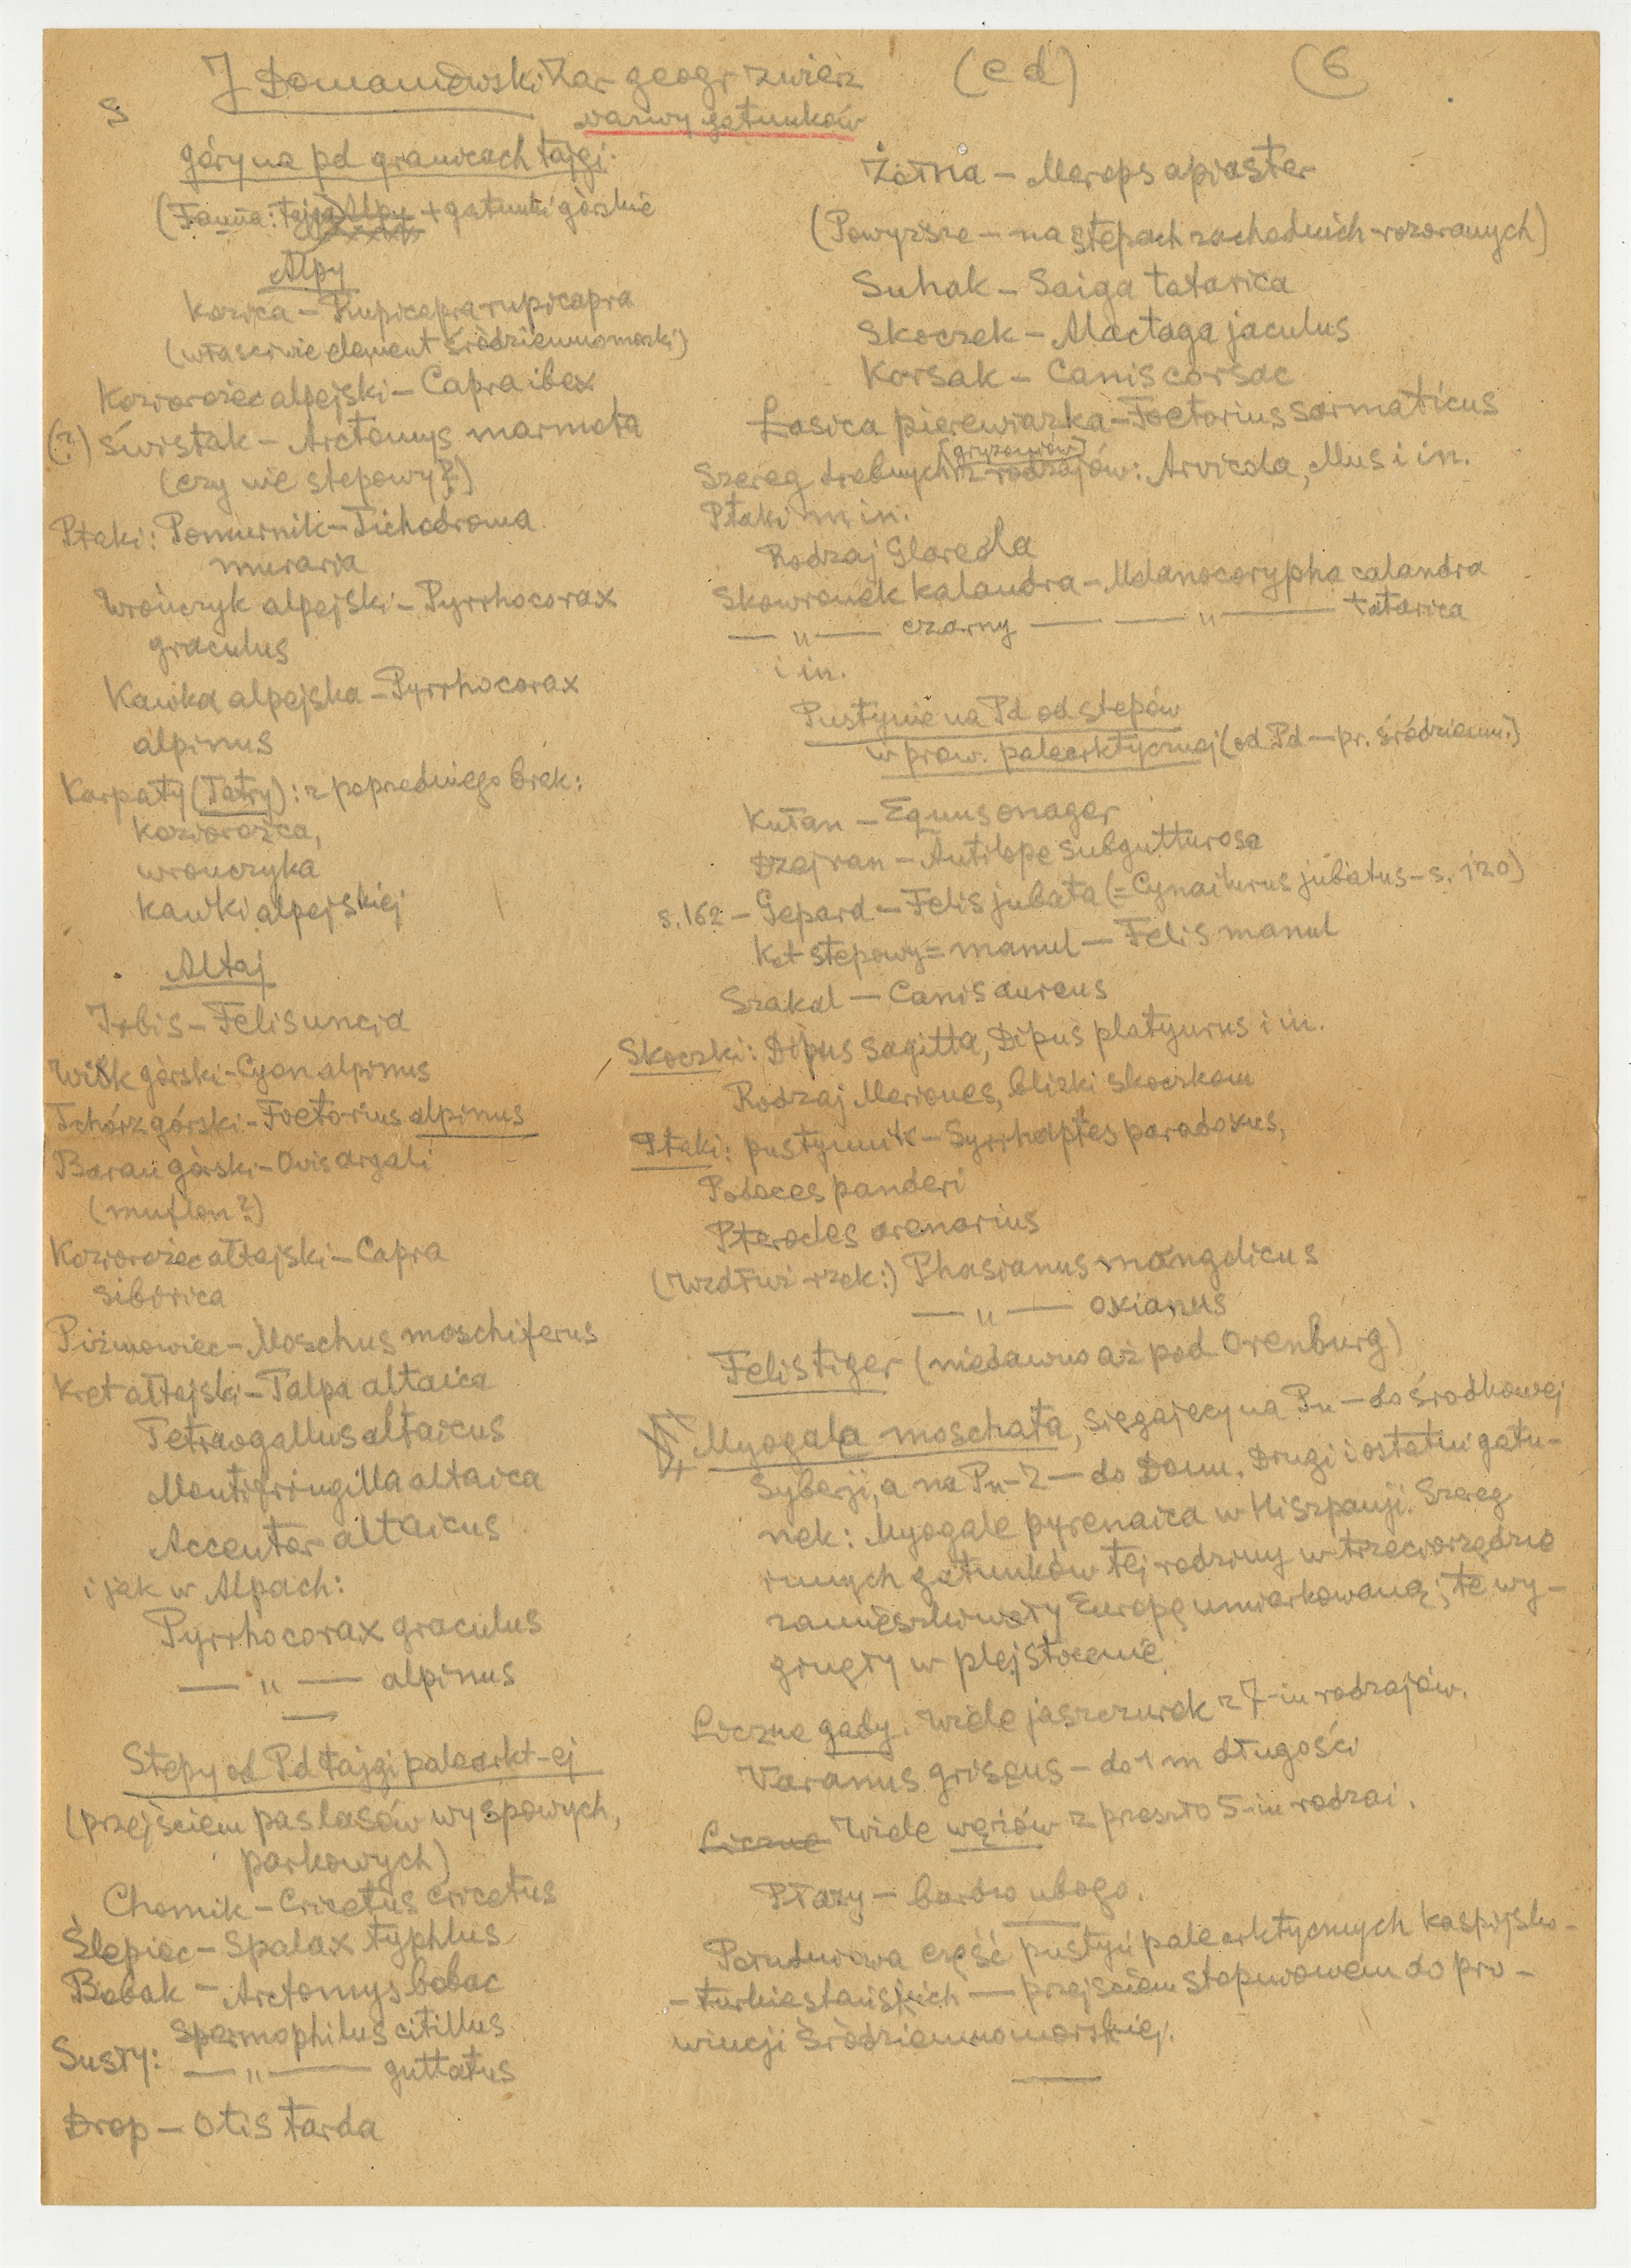 J Domaniewski Zar geogr zwierz (cd) (6
nazwy gatunków
S
góry na pd granicach tajgi.
(Fauna: tajga) Alpy + gatunki górskie
Alpy
Kozica – Rupicapra rupicapra
(właściwie element śródziemnomorski)
Koziorożec alpejski – Capra ibex
(?) świstak – Arctomys marmota
(czy nie stepowy?)
Ptaki: Pomurnik – Tichodroma
muraria
Wrończyk alpejski – Pyrrhocorax
graculus
Kawka alpejska – Pyrrhocorax
alpinus
Karpaty (Tatry): z poprzedniego brak:
koziorożca,
wrończyka
kawki alpejskiej
Altaj
Irbis – Felis uncia
Wilk górski – Cyon alpinus
Tchórz górski – Foetorius alpinus
Baran górski – Ovis argali
(muflon?)
Koziorożec ałtajski – Capra
sibirica
Piżmowiec – Moschus moschiferus
Kret ałtajski – Talpa altaica
Tetraogallus altaicus
Montifringilla altaica
Accentor altaicus
i jak w Alpach:
Pyrrhocorax graculus
— „ — alpinus
Stepy od Pd tajgi palearkt-ej
(przejściem pas lasów wyspowych,
parkowych)
Chomik – Cricetus cricetus
Ślepiec – Spalax typhlus
Bobak – Arctomys bobac
Susły: Spermophilus citillus
— „ — guttatus
Drop – Otis tarda
Żołna – Merops apiaster
(Powyższe – na stepach zachodnich – rozoranych)
Suhak – Saiga tatarica
Skoczek – Alactaga jaculus
Korsak – Canis corsac
Łasica pierewiazka – Foetorius sarmaticus
[gryzoniów]
Szereg drobnych z rodzajów: Arvicola, Mus i in.
Ptaki m. in.
Rodzaj Glareola
Skowronek kalandra – Melanocorypha calandra
— „ — czarny — — „ — tatarica
i in.
Pustynie na Pd od stepów
w prow. palearktycznej (od Pd – pr. śródziemn.)
Kułan – Equus onager
Dzejran – Antilope subgutturosa
s. 162 – Gepard – Felis jubata (= Cynailurus jubatus – s. 120)
Kot stepowy = manul – Felis manul
Szakal – Canis aureus
Skoczki: Dipus sagitta, Dipus platyurus i in.
Rodzaj Meriones, bliski skoczkom
Ptaki: pustynnik – Syrrhaptes paradoxus,
Podoces panderi
Pterocles arenarius
(wzdłuż rzek:) Phasianus mongolicus
— „ — oxianus
Felis tiger (niedawno aż pod Orenburg)
Myogala moschata, sięgający na Pn – do środkowej
Syberji, a na Pn-Z – do Donu. Drugi i ostatni gatu-
nek: Myogale pyrenaica w Hiszpanji. Szereg
innych gatunków tej rodziny w trzeciorzędzie
zamieszkiwały Europę umiarkowaną; te wy-
ginęły w plejstocenie.
Liczne gady. Wiele jaszczurek z 7-iu rodzajów.
Varanus griseus – do 1 m długości
Liczne Wiele wężów z przeszło 5-iu rodzai.
Płazy – bardzo ubogo.
Południowa część pustyń palearktycznych kaspijsko-
-turkiestańskich – przejściem stopniowem do pro-
wincji śródziemnomorskiej.